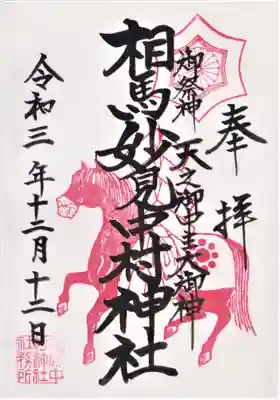 奉拝
御祭神 天之御中主大御神
相馬妙見中村神社
令和三年十二月十二日